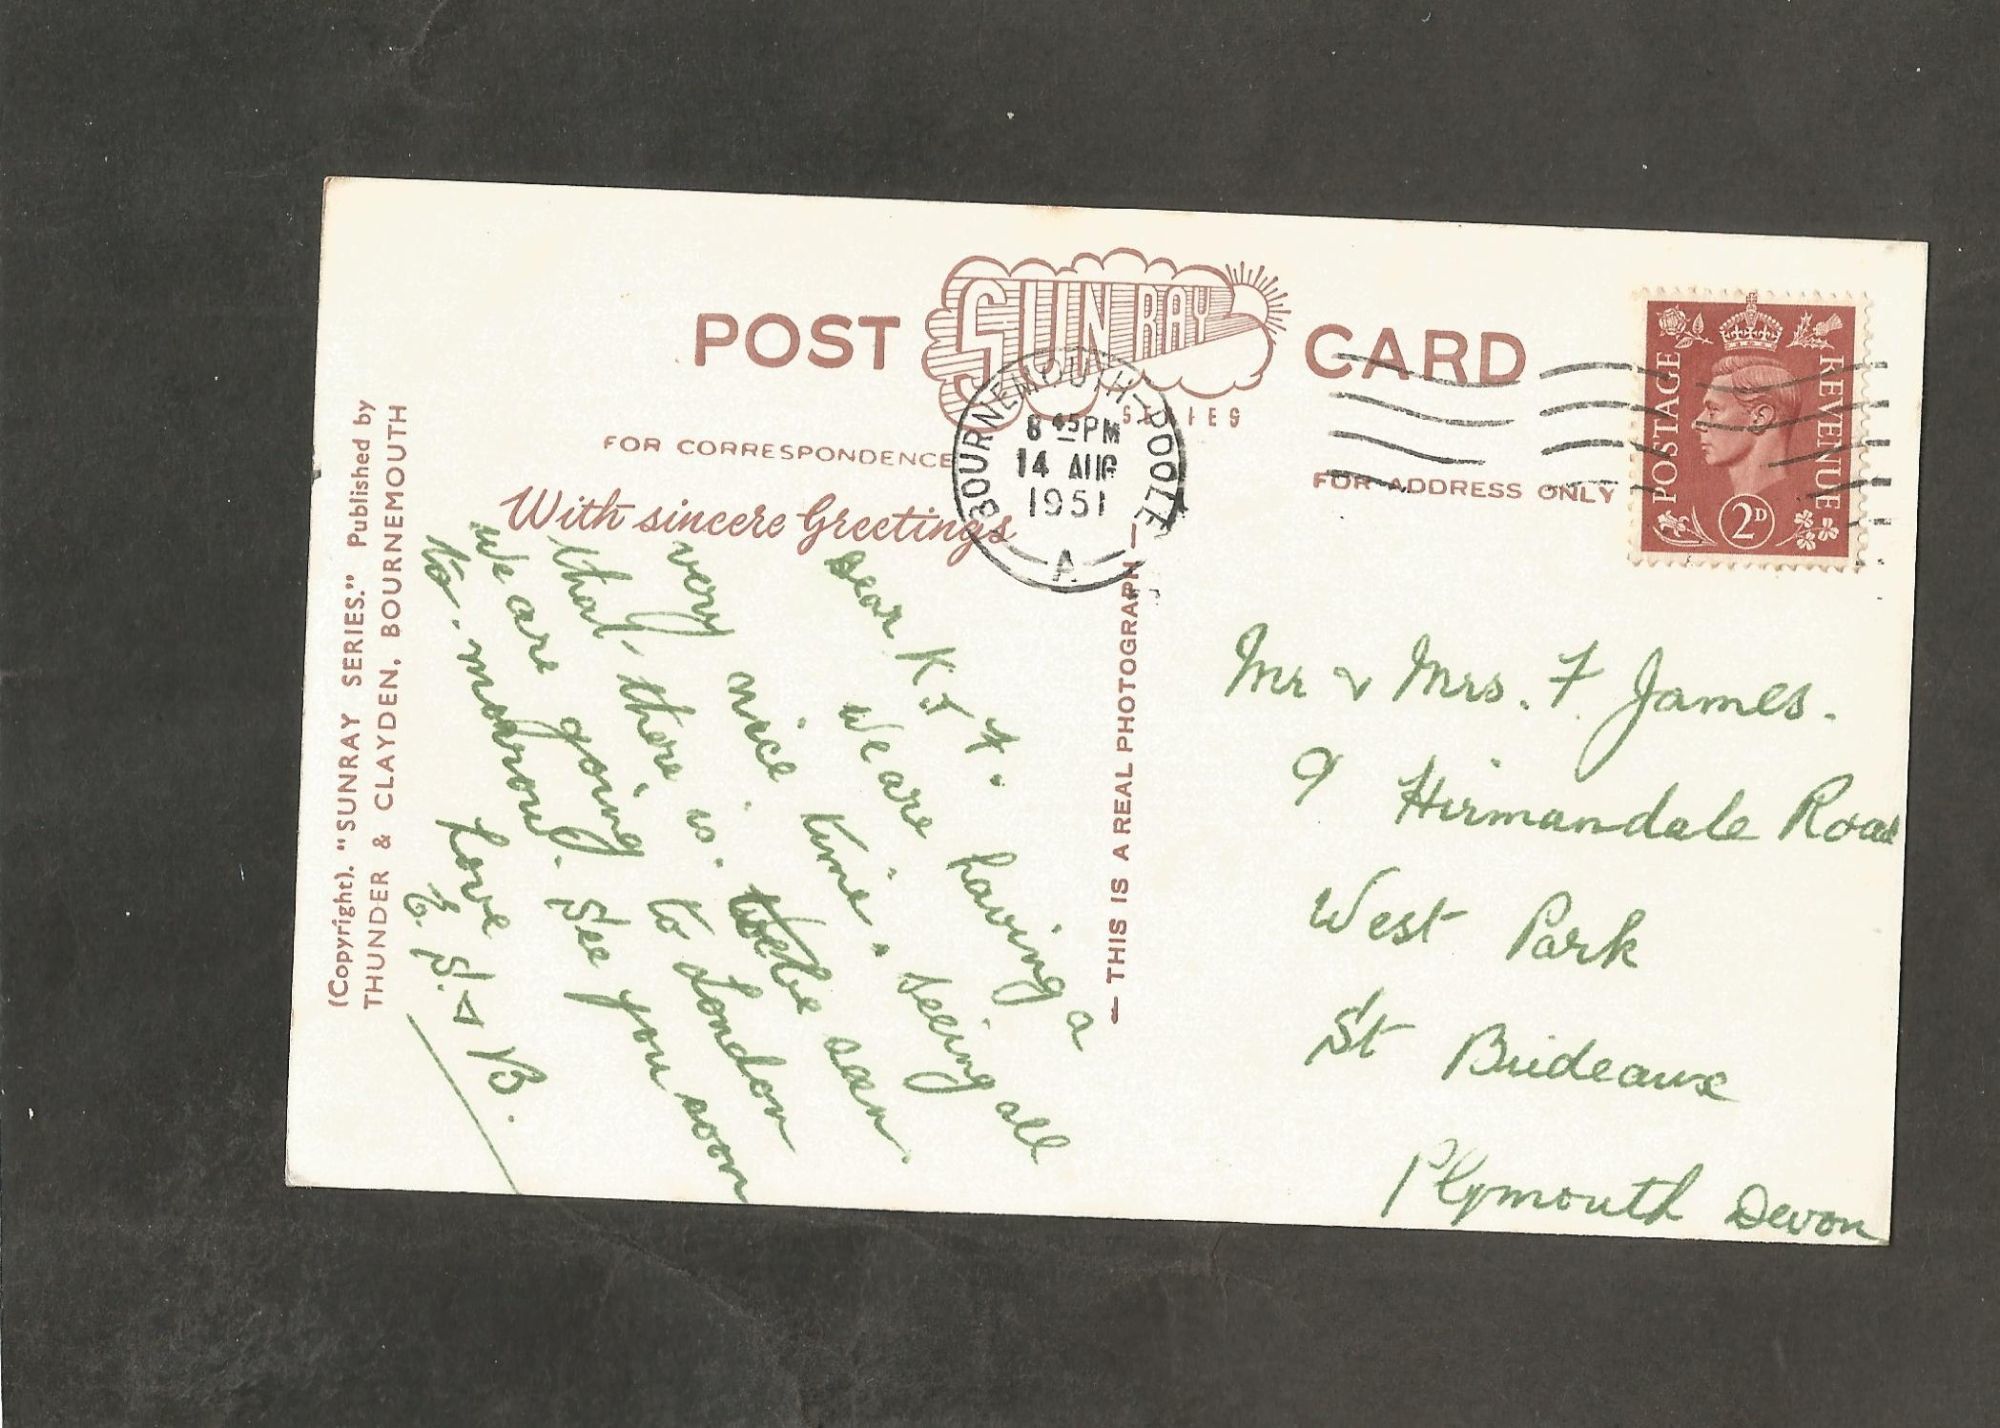 POST SUNRAY CARD
SERIES
FOR CORRESPONDENCE
FOR ADDRESS ONLY
With sincere Greetings
BOURNEMOUTH-POOLE
8 45 PM
14 AUG
1951
A
POSTAGE REVENUE
2D
(Copyright). "SUNRAY SERIES." Published by
THUNDER & CLAYDEN, BOURNEMOUTH
— THIS IS A REAL PHOTOGRAPH —
Dear K & F.
We are having a
very nice time. seeing all
that, there is. to be seen
we are going to London
to-morrow. See you soon
Love
E. S. & B.
Mr & Mrs. F James.
9 Hirmandale Road
West Park
St Brideaux
Plymouth Devon